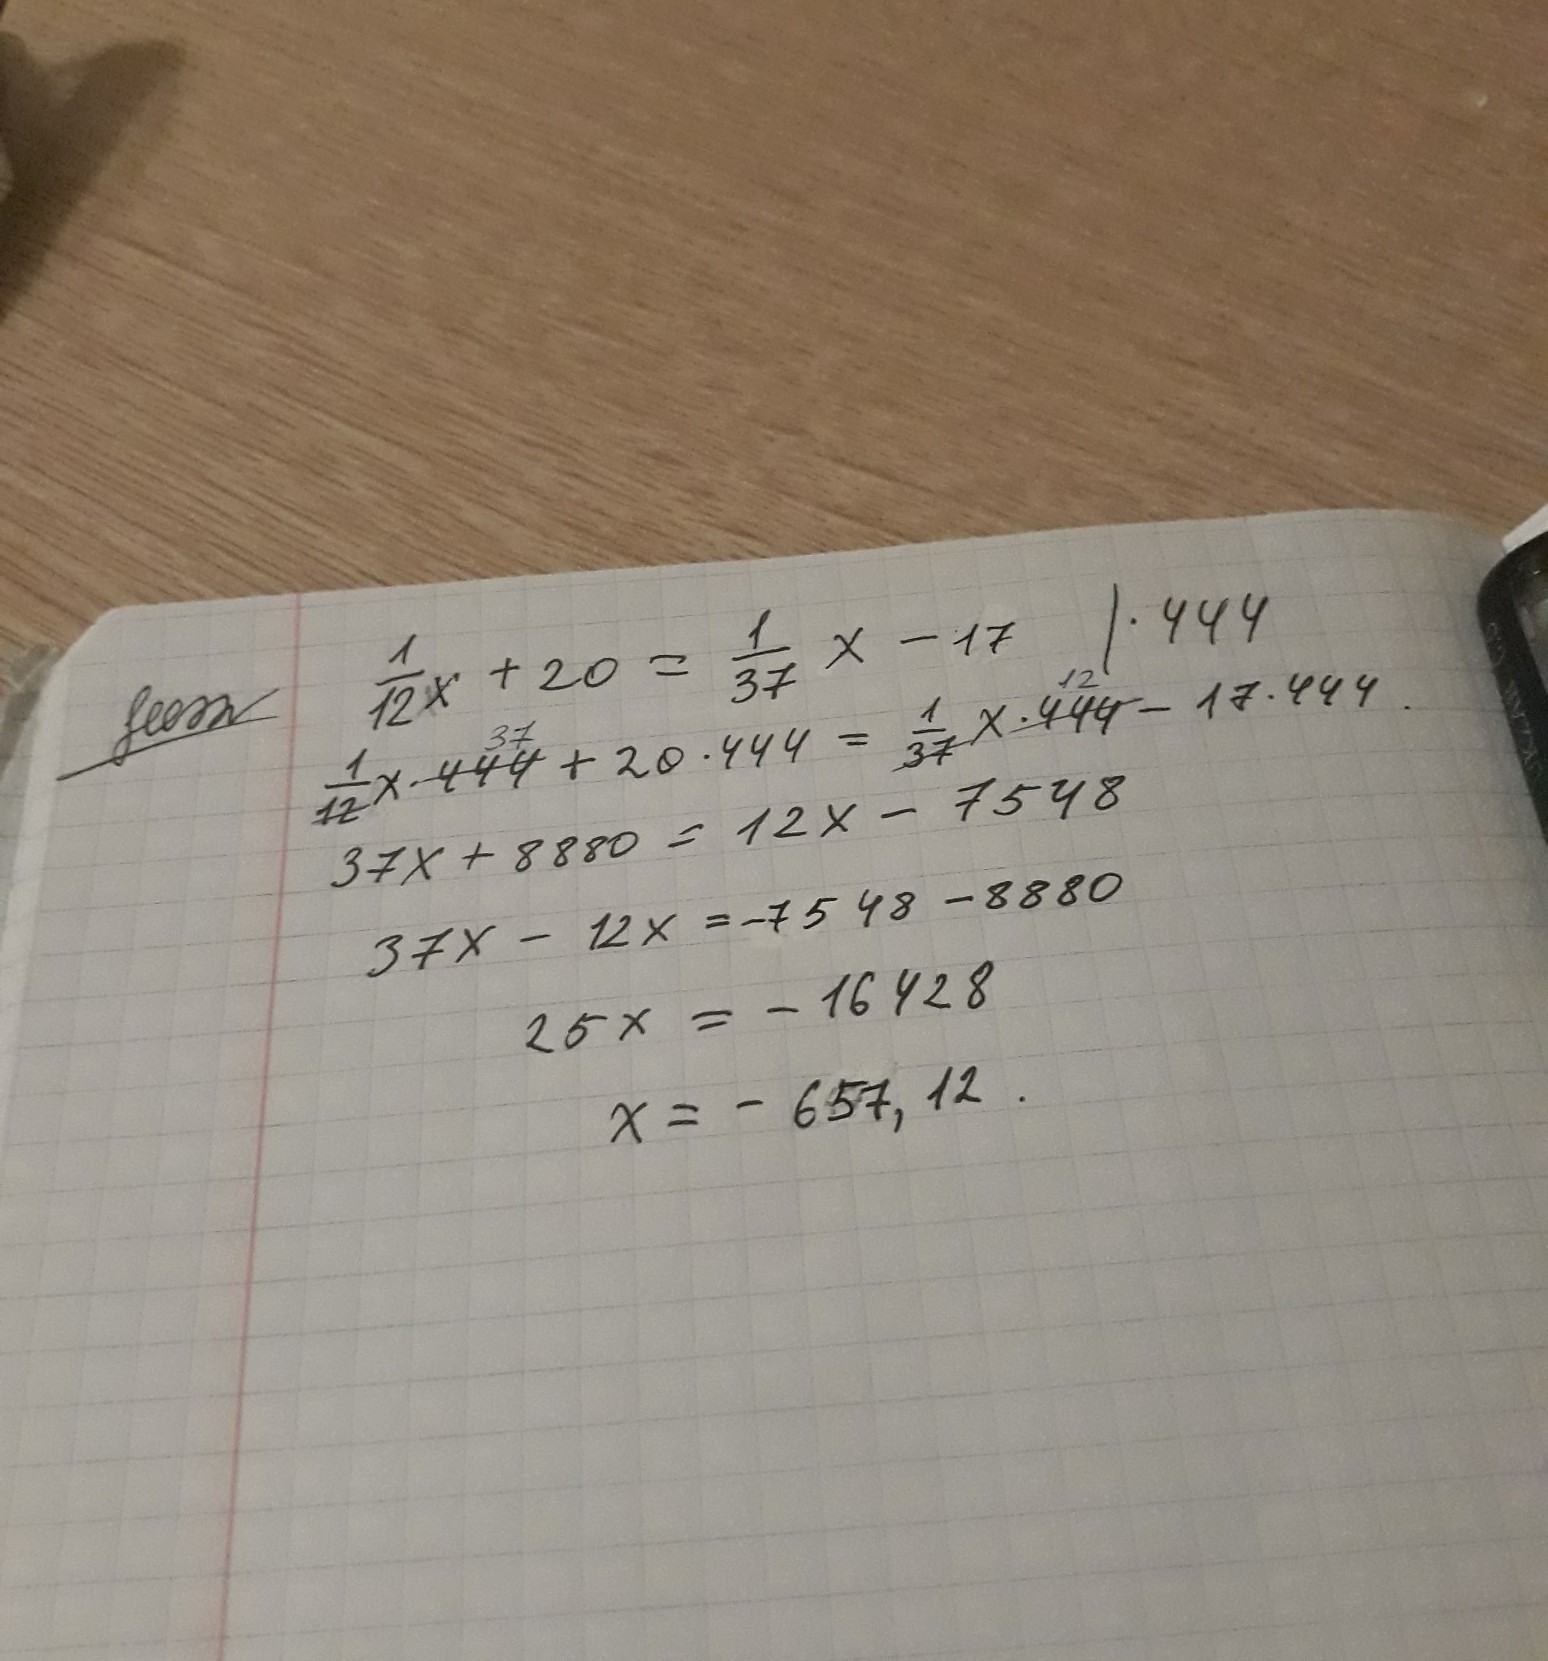 1/12 x + 20 = 1/37 x - 17 | · 444
1/12 x · 444 37 + 20 · 444 = 1/37 x · 444 12 - 17 · 444 .
37x + 8880 = 12x - 7548
37x - 12x = -7548 - 8880
25x = - 16428
x = - 657,12 .